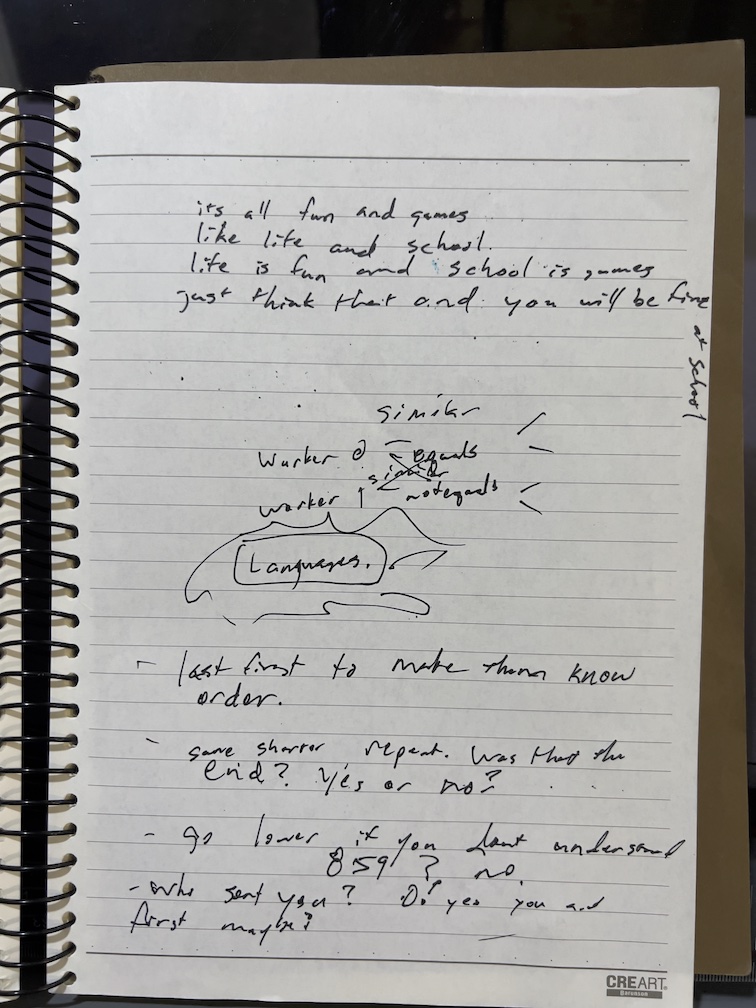 its all fun and games
like life and school.
life is fun and school is games
just think that and you will be fine
at school
similar
Worker equals
similar
worker notequals
Languages.
- last first to make them know
order.
- same shorter repeat. Was that the
end? Yes or no?
- go lower if you dont understand
8:59 ? no.
- who sent you? Or yes you and
first maybe?
CREART